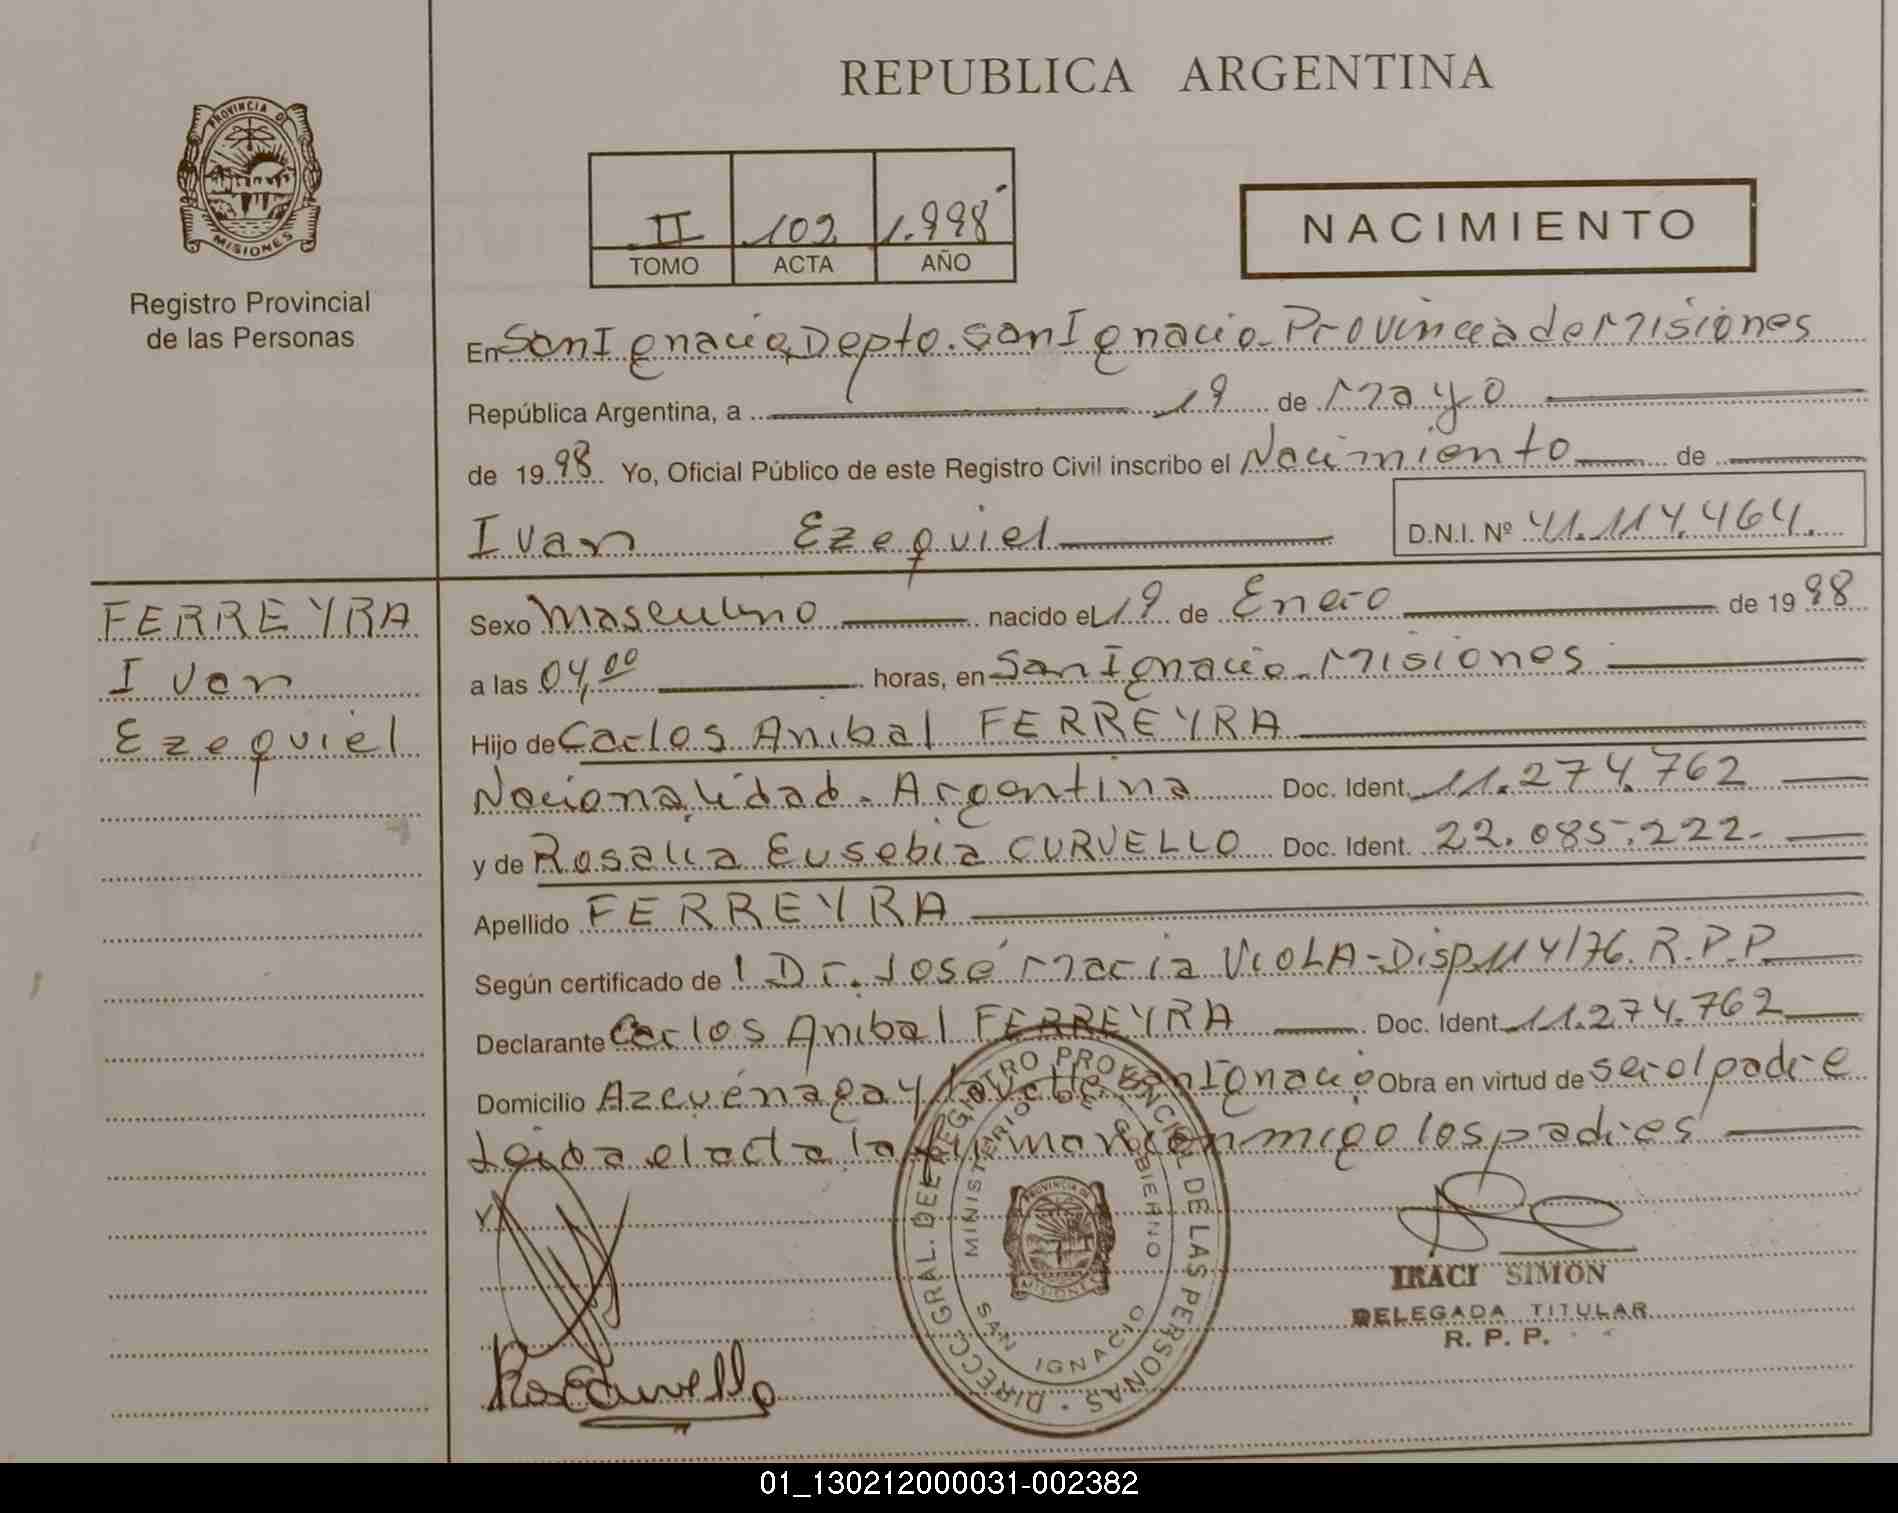 REPUBLICA ARGENTINA
PROVINCIA DE
MISIONES
Registro Provincial
de las Personas
II 102 1.998
TOMO ACTA AÑO
NACIMIENTO
En San Ignacio, Depto. San Ignacio - Provincia de Misiones
República Argentina, a 19 de Mayo
de 1998 Yo, Oficial Público de este Registro Civil inscribo el Nacimiento de
Ivan Ezequiel D.N.I. Nº 41.114.464.
FERREYRA
Ivan
Ezequiel
Sexo Masculino nacido el 19 de Enero de 1998
a las 04,00 horas, en San Ignacio - Misiones
Hijo de Carlos Anibal FERREYRA
Nacionalidad - Argentina Doc. Ident. 11.274.762
y de Rosalia Eusebia CURVELLO Doc. Ident. 22.085.222.
Apellido FERREYRA
Según certificado de Dr. José Maria VIOLA - Disp. 114/76. R.P.P.
Declarante Carlos Anibal FERREYRA Doc. Ident. 11.274.762
Domicilio Azcuénaga y San Ignacio Obra en virtud de ser el padre
Leida el acta la firman conmigo los padres
DIRECC. GRAL. DEL REGISTRO PROVINCIAL DE LAS PERSONAS
MINISTERIO DE GOBIERNO
PROVINCIA DE
MISIONES
SAN IGNACIO
IRACI SIMON
DELEGADA TITULAR
R. P. P.
RosECurvello
01_130212000031-002382